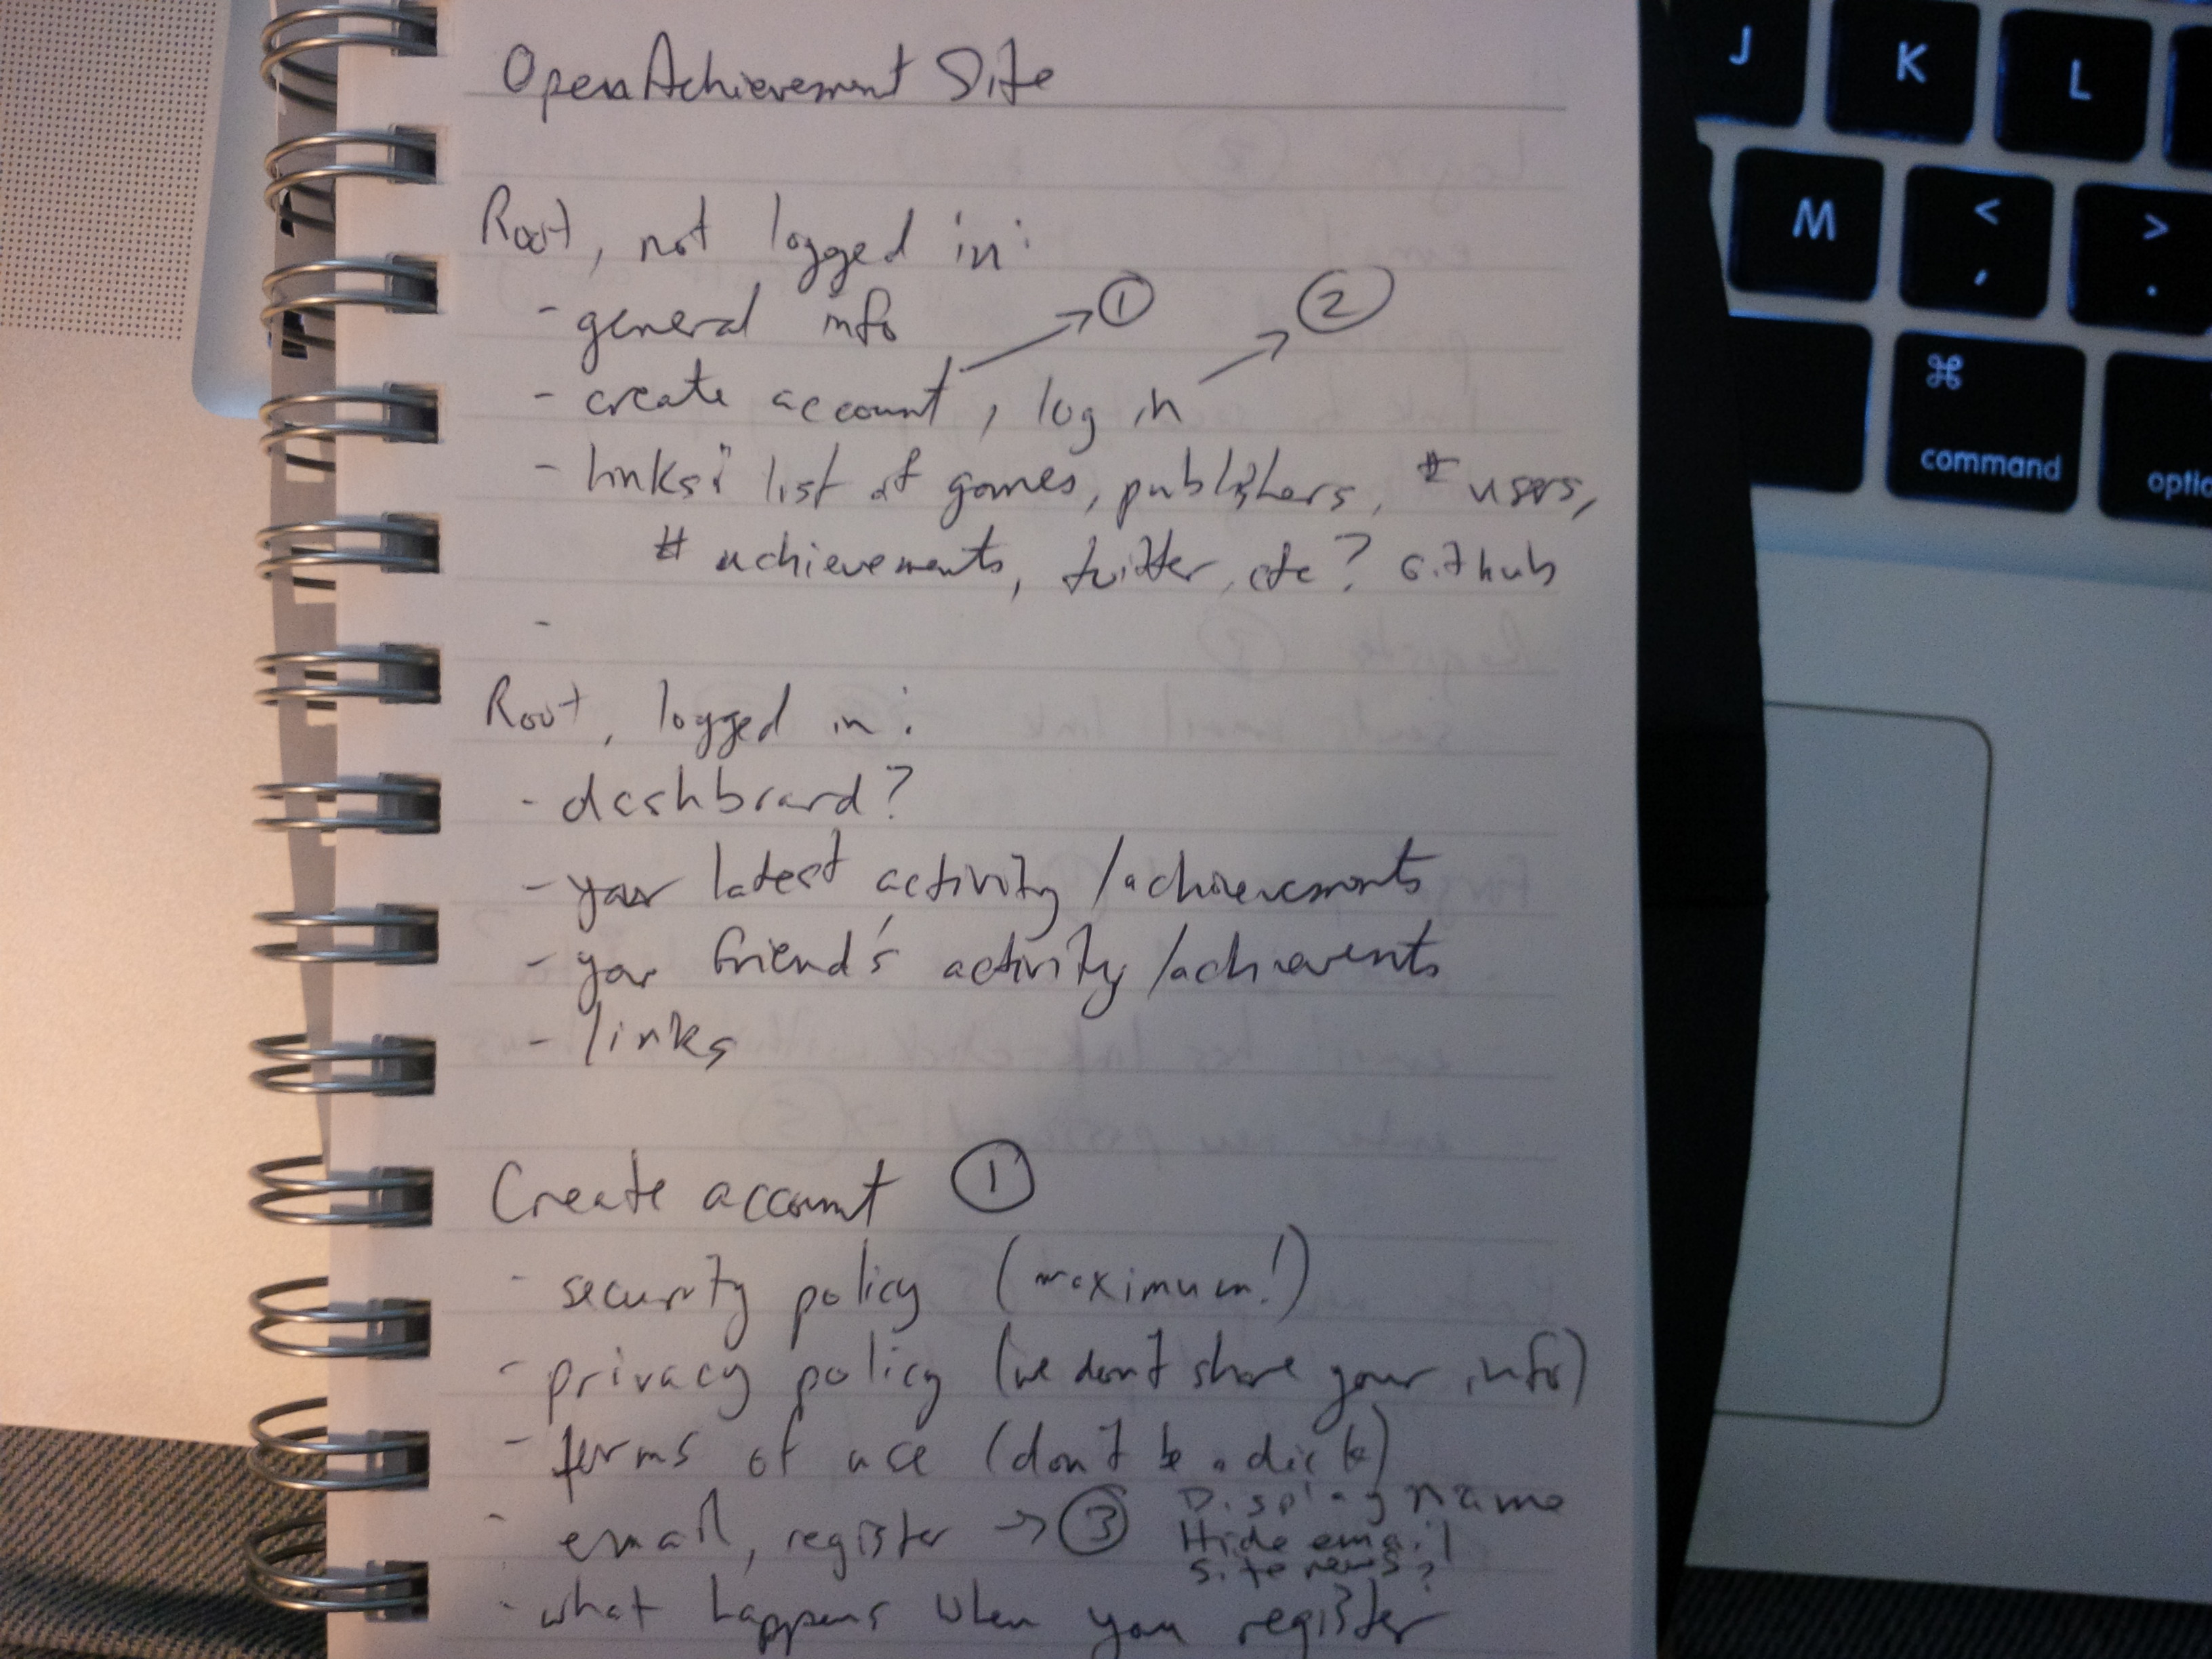 OpenAchievement Site
Root, not logged in:
- general info
① ②
- create account, log in
- links: list of games, publishers, # users,
# achievements, twitter, etc? Github
-
Root, logged in:
- dashboard?
- your latest activity/achievements
- your friend's activity/achievents
- links
Create account ①
- security policy (maximum!)
- privacy policy (we don't share your info)
- terms of use (don't be a dick)
- email, register → ③ Display name
Hide email
site news?
- what happens when you register
J K L
M < ,
> .
⌘
command
optio